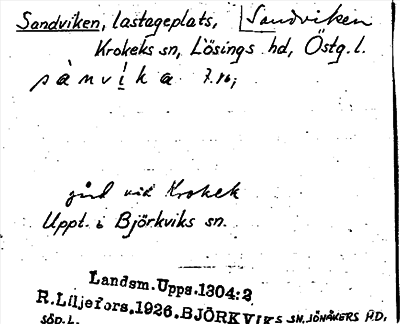 Sandviken, lastageplats, Sandviken
Krokeks sn, Lösings hd, Östg. l.
sànvíka
gård vid Krokek
Uppt. i Björkviks sn.
Landsm. Upps. 1304:2
R. Liljefors. 1926. BJÖRKVIKS SN, JÖNÅKERS HD,
SÖD. L.